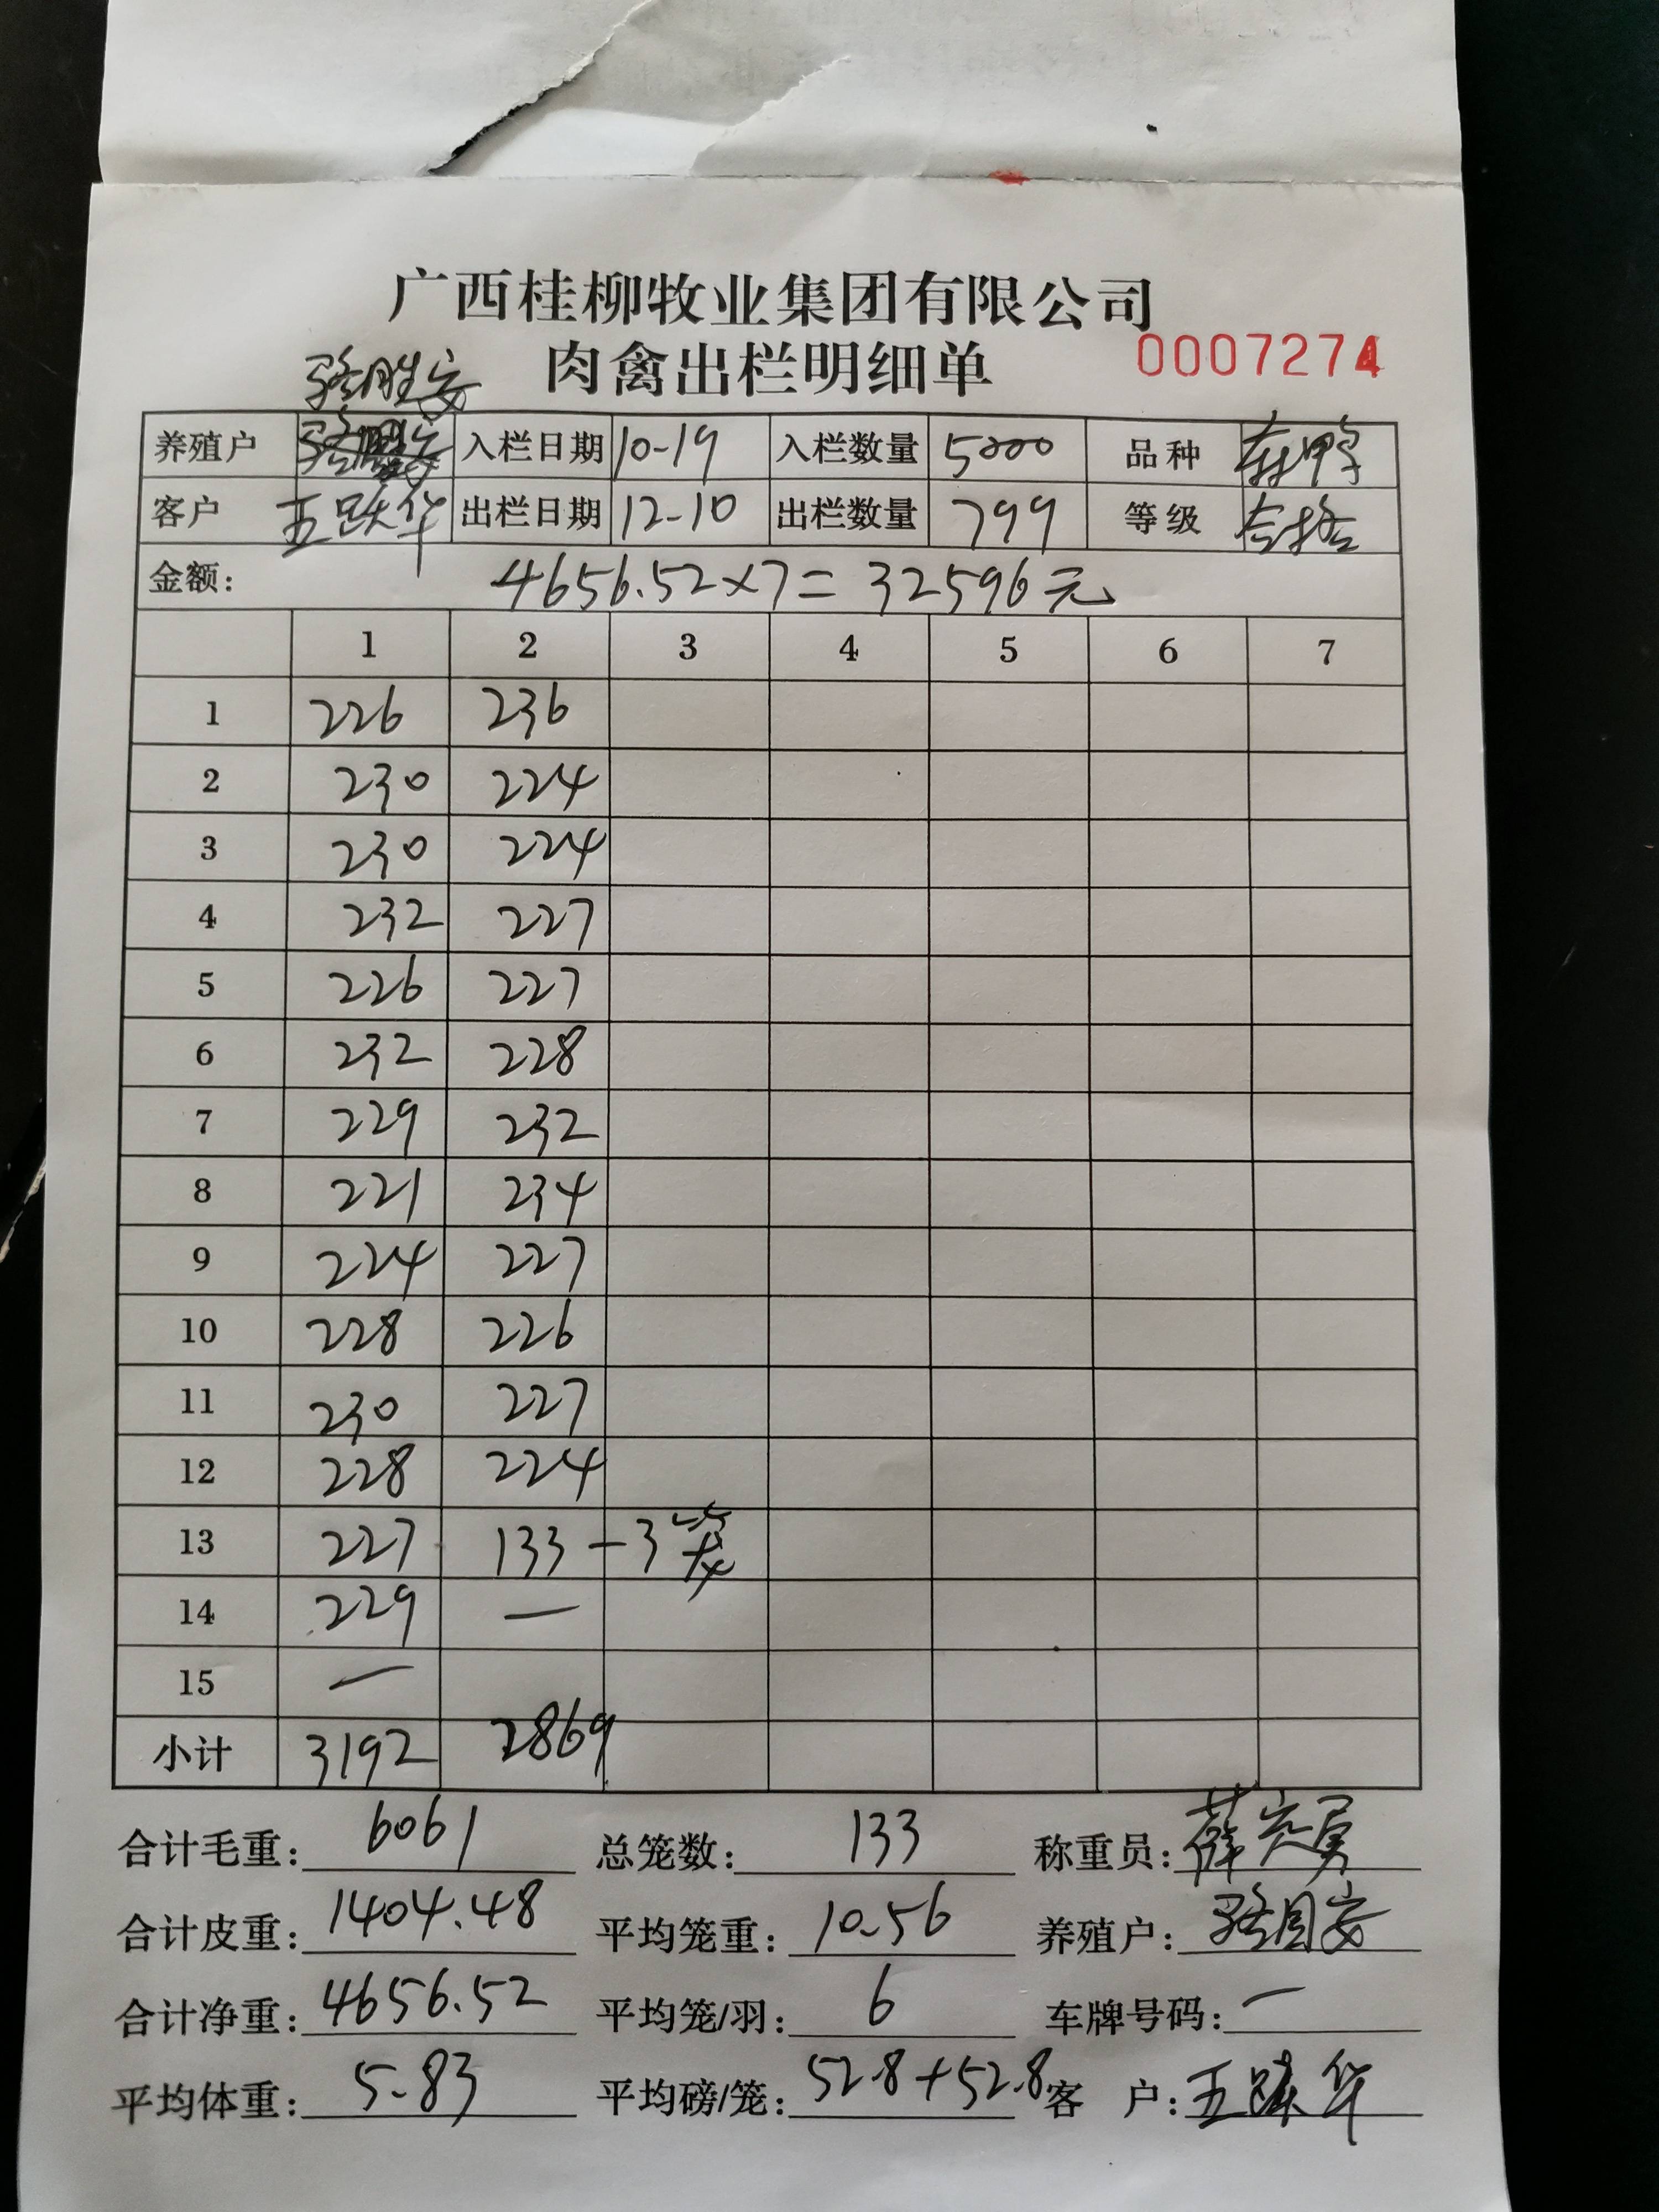 广西桂柳牧业集团有限公司
肉禽出栏明细单 0007274
骆胜安
养殖户 入栏日期 10-19 入栏数量 5000 品种
客户 王跃华 出栏日期 12-10 出栏数量 799 等级 合格
金额: 4656.52×7=32596元
1 2 3 4 5 6 7
1 226 236
2 230 224
3 230 224
4 232 227
5 226 227
6 232 228
7 229 232
8 221 234
9 224 227
10 228 226
11 230 227
12 228 224
13 227 133-3笼
14 229 —
15 —
小计 3192 2869
合计毛重: 6061 总笼数: 133 称重员:
合计皮重: 1404.48 平均笼重: 10.56 养殖户:
合计净重: 4656.52 平均笼/羽: 6 车牌号码: —
平均体重: 5.83 平均磅/笼: 52.8+52.8 客户: 王跃华